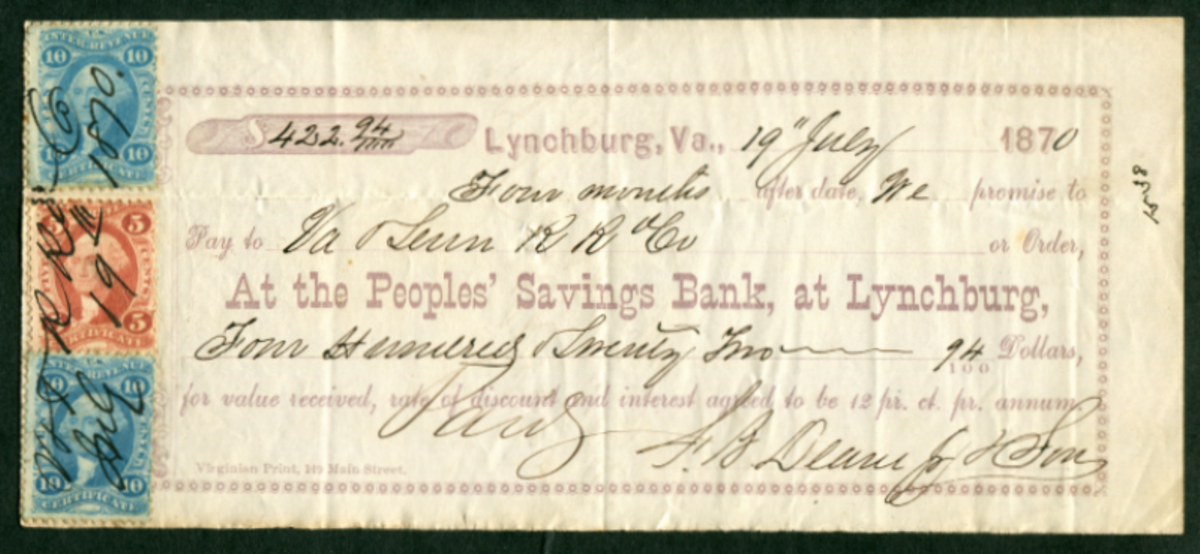 INTER. REVENUE
10 10
1870.
10 10
CERTIFICATE
5
19
5
CERTIFICATE
10 10
CERTIFICATE
$422.94/100 Lynchburg, Va., 19" July 1870
Four months after date, We promise to
Pay to Va & Tenn R R Co or Order,
At the Peoples' Savings Bank, at Lynchburg,
Four Hundred & Twenty Two 94/100 Dollars,
for value received, rate of discount and interest agreed to be 12 pr. ct. pr. annum
F. B. Deane Jr & Son
Virginian Print, 149 Main Street.